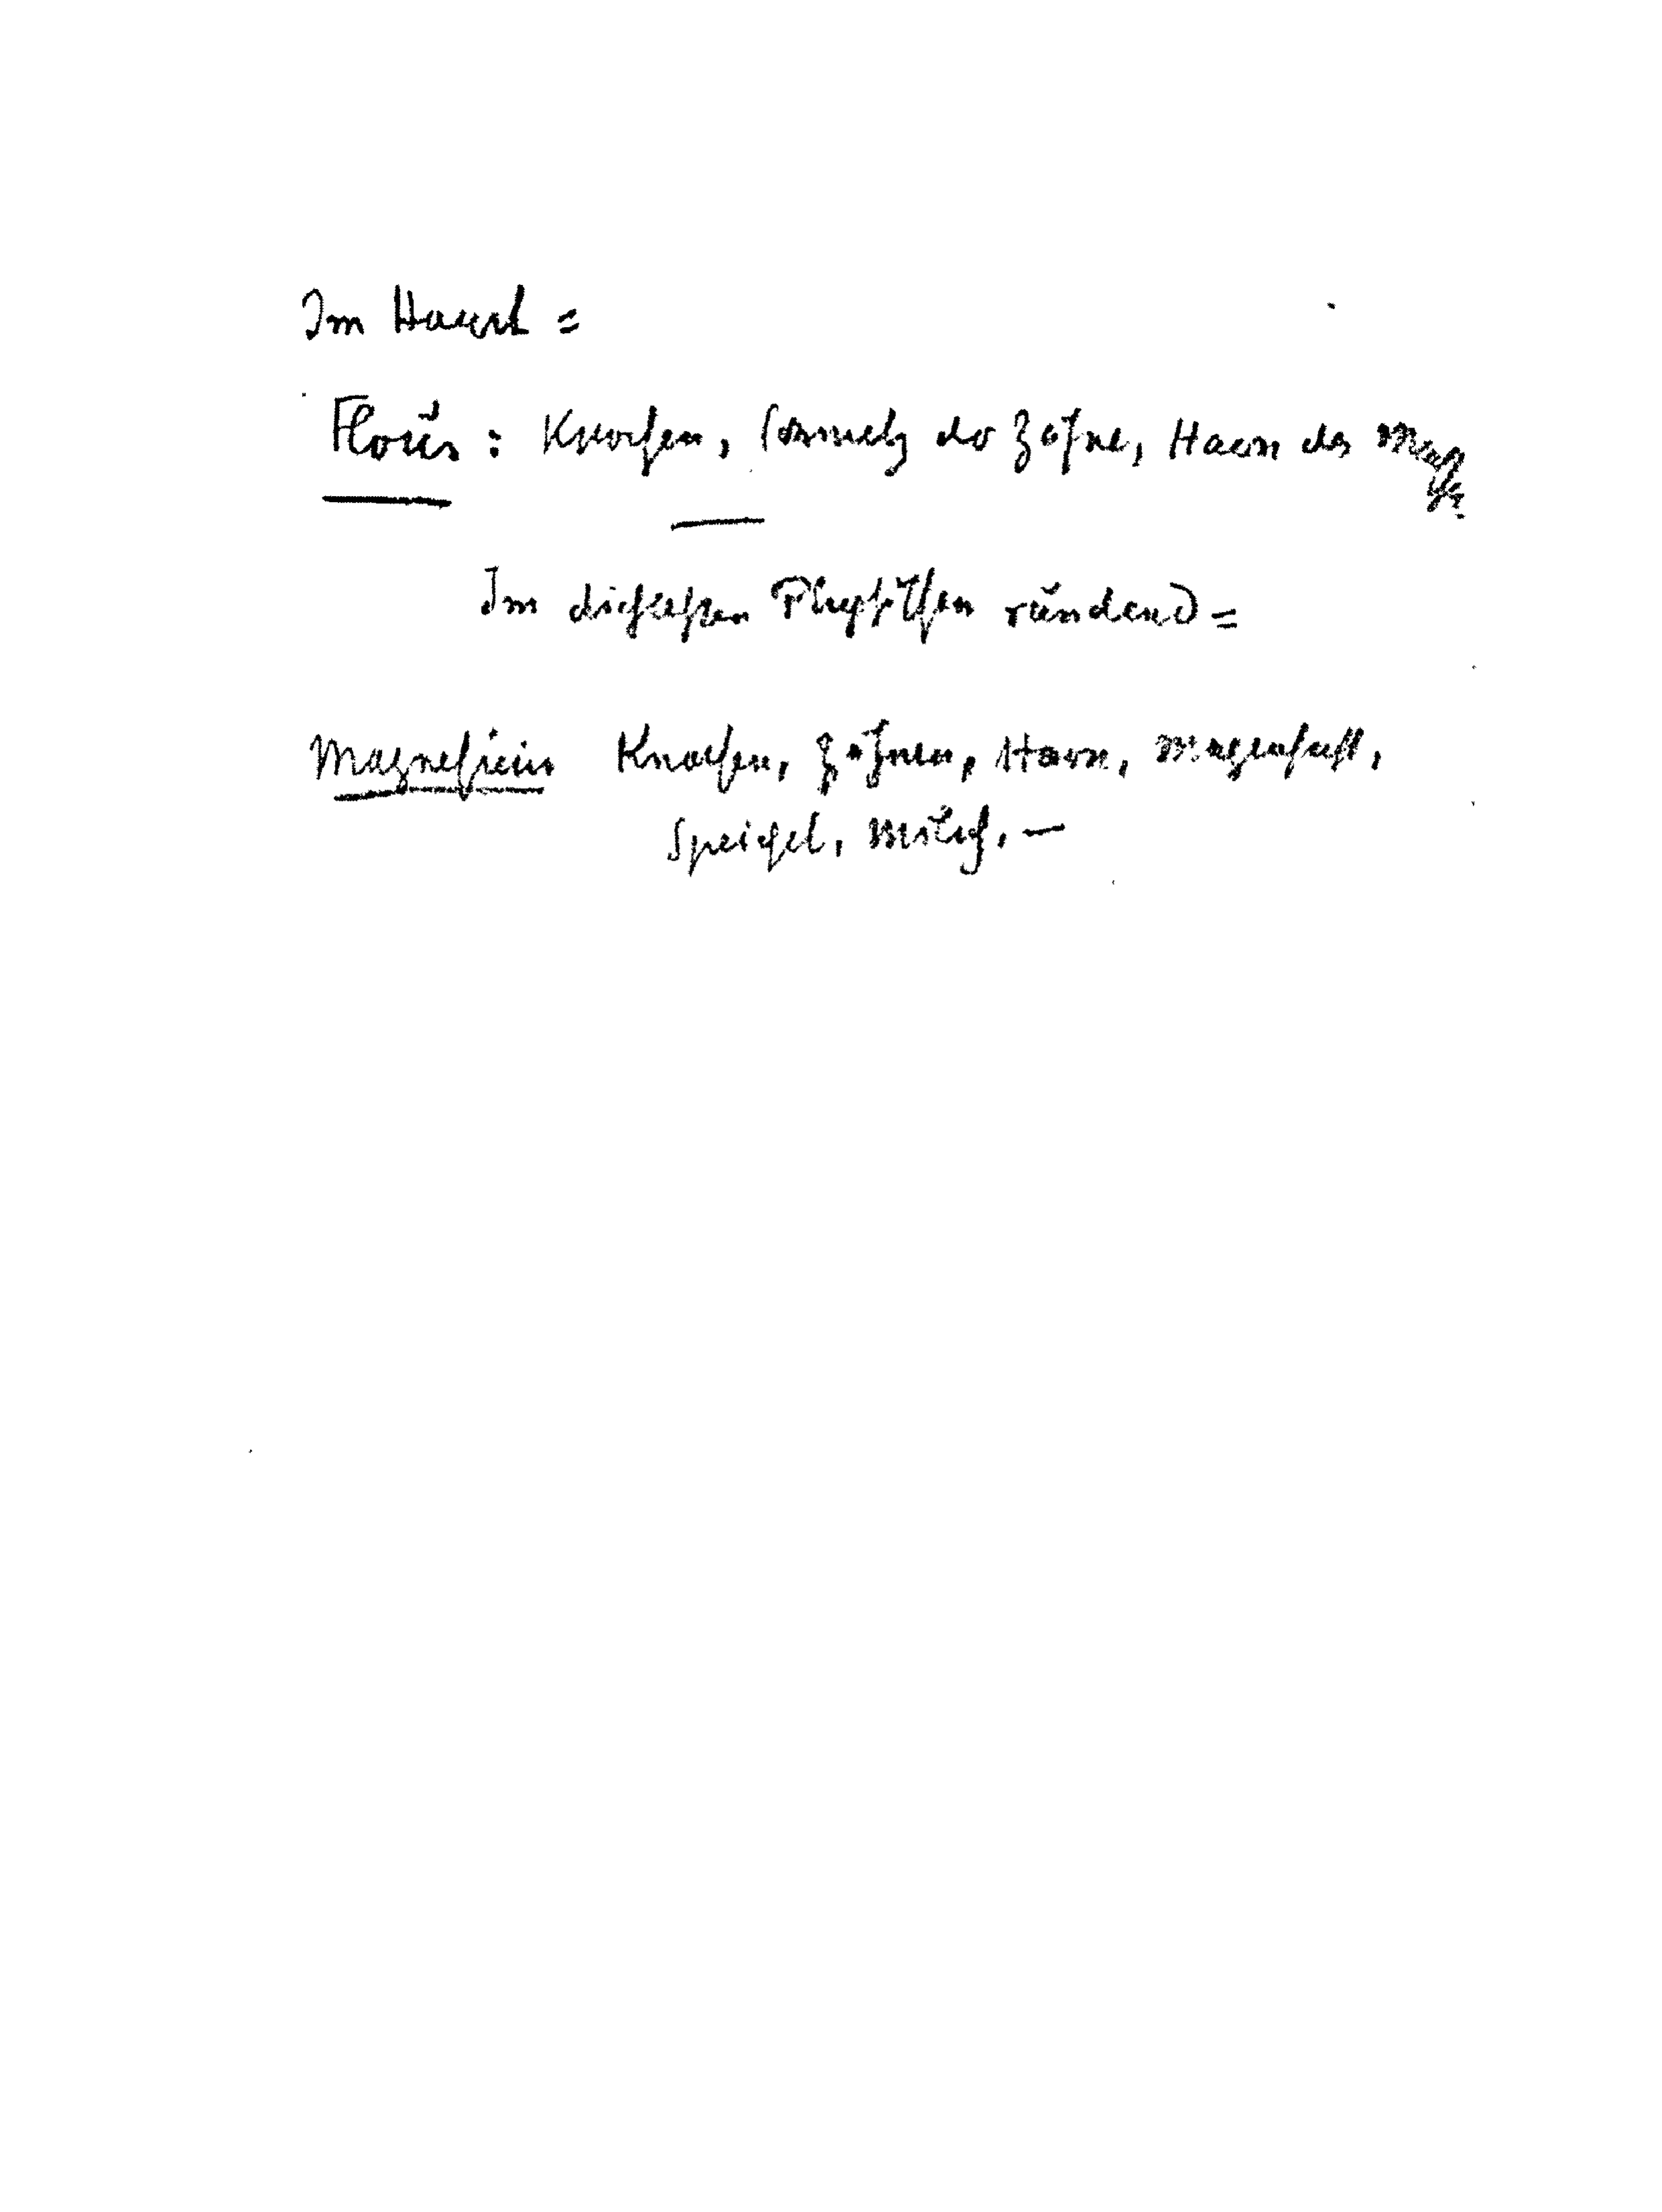 Im Haupt =
Fluor : Knochen, Schmelz der Zähne, Harn des Mensch
Im dichtesten Physischen ründend =
Magnesium Knochen, Zähnen, Harn, Magensaft,
Speichel, Milch, —